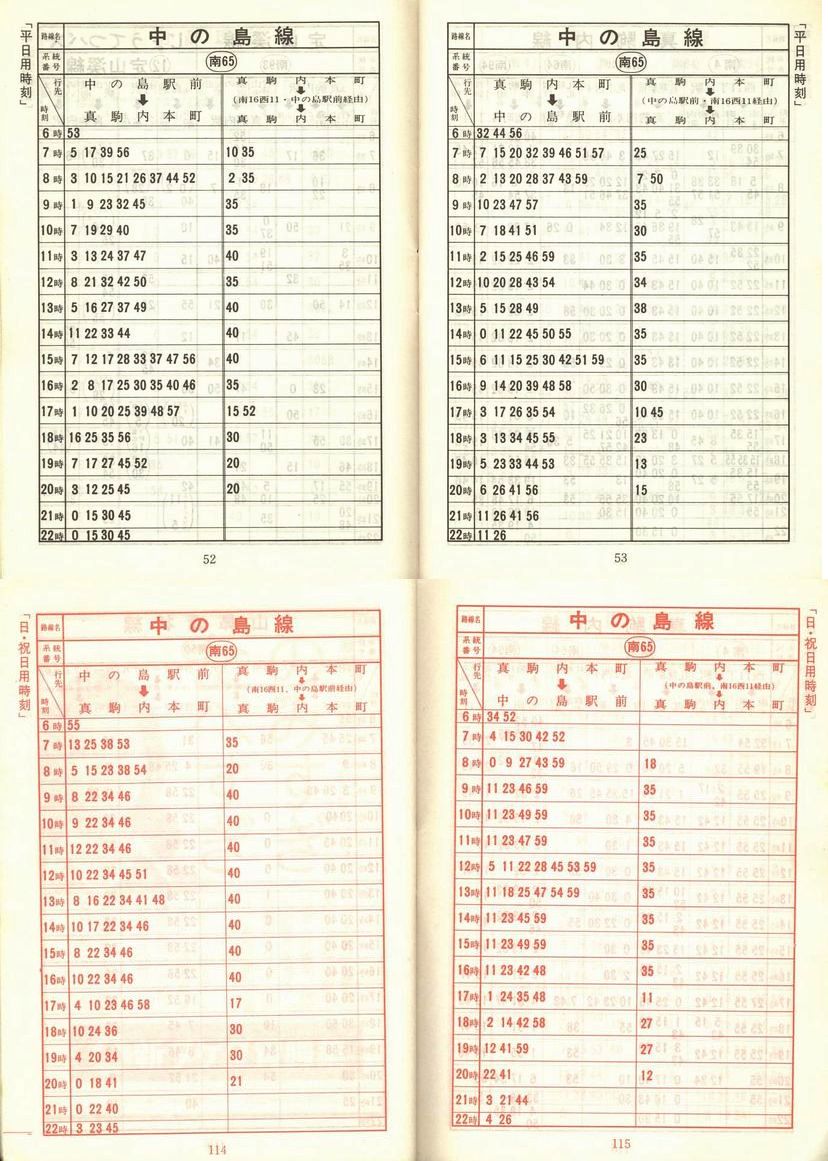 「平日用時刻」
路線名 中の島線
系統番号 南65
行先 中の島駅前 真駒内本町
↓ ↓
(南16西11・中の島駅前経由)
時刻 真駒内本町 真駒内本町
6時 53
7時 5 17 39 56 10 35
8時 3 10 15 21 26 37 44 52 2 35
9時 1 9 23 32 45 35
10時 7 19 29 40 35
11時 3 13 24 37 47 40
12時 8 21 32 42 50 35
13時 5 16 27 37 49 40
14時 11 22 33 44 40
15時 7 12 17 28 33 37 47 56 40
16時 2 8 17 25 30 35 40 46 35
17時 1 10 20 25 39 48 57 15 52
18時 16 25 35 56 30
19時 7 17 27 45 52 20
20時 3 12 25 45 20
21時 0 15 30 45
22時 0 15 30 45
52
「平日用時刻」
路線名 中の島線
系統番号 南65
行先 真駒内本町 真駒内本町
↓ ↓
(中の島駅前・南16西11経由)
時刻 中の島駅前 真駒内本町
6時 32 44 56
7時 7 15 20 32 39 46 51 57 25
8時 2 13 20 28 37 43 59 7 50
9時 10 23 47 57 35
10時 7 18 41 51 30
11時 2 15 25 46 59 35
12時 10 20 28 43 54 34
13時 5 15 28 49 38
14時 0 11 22 45 50 55 35
15時 6 11 15 25 30 42 51 59 35
16時 9 14 20 39 48 58 30
17時 3 17 26 35 54 10 45
18時 3 13 34 45 55 23
19時 5 23 33 44 53 13
20時 6 26 41 56 15
21時 11 26 41 56
22時 11 26
53
「日・祝日用時刻」
路線名 中の島線
系統番号 南65
行先 中の島駅前 真駒内本町
↓ ↓
(南16西11、中の島駅前経由)
時刻 真駒内本町 真駒内本町
6時 55
7時 13 25 38 53 35
8時 5 15 23 38 54 20
9時 8 22 34 46 40
10時 9 22 34 46 40
11時 12 22 34 46 40
12時 10 22 34 45 51 40
13時 8 16 22 34 41 48 40
14時 10 17 22 34 46 40
15時 8 22 34 46 40
16時 10 22 34 46 40
17時 4 10 23 46 58 17
18時 10 24 36 30
19時 4 20 34 30
20時 0 18 41 21
21時 0 22 40
22時 3 23 45
114
「日・祝日用時刻」
路線名 中の島線
系統番号 南65
行先 真駒内本町 真駒内本町
↓ ↓
(中の島駅前、南16西11経由)
時刻 中の島駅前 真駒内本町
6時 34 52
7時 4 15 30 42 52
8時 0 9 27 43 59 18
9時 11 23 46 59 35
10時 11 23 49 59 35
11時 11 23 47 59 35
12時 5 11 22 28 45 53 59 35
13時 11 18 25 47 54 59 35
14時 11 23 45 59 35
15時 11 23 49 59 35
16時 11 23 42 48 35
17時 1 24 35 48 11
18時 2 14 42 58 27
19時 12 41 59 27
20時 22 41 12
21時 3 21 44
22時 4 26
115